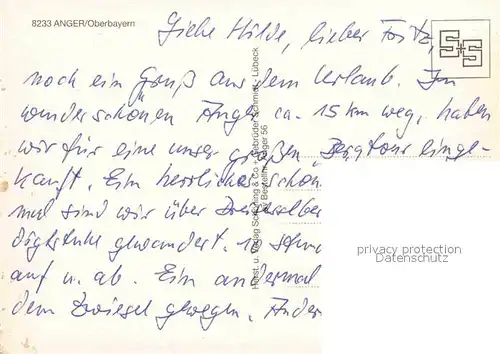 8233 ANGER/Oberbayern
Liebe Hilde, lieber Fritz,
noch ein Gruß aus dem Urlaub. Im
wunderschönen Anger ca. 15 km weg, haben
wir für eine unser großen Bergtour einge-
kauft. Ein herrlicher schön
mal sind wir über
gewandert.
auf u. ab. Ein andermal
dem Zwiesel gewesen. Ander
Horst. u. Verlag Schöning & Co + Gebrüder Schmidt, Lübeck
Bestellnr. Anger 56
SS
privacy protection
DELCAMPE